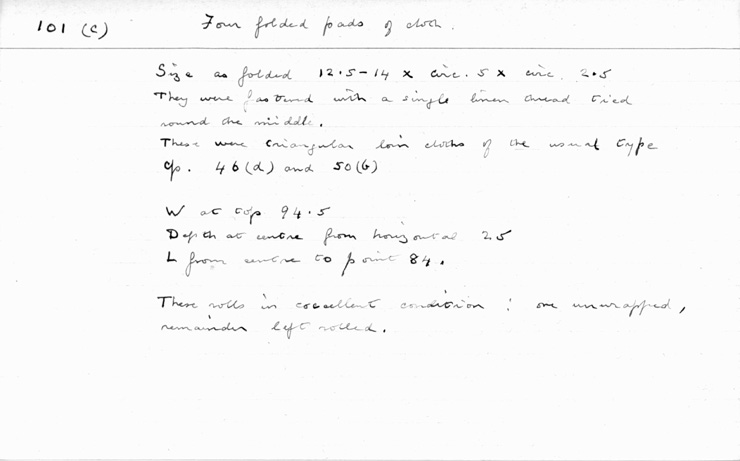 101 (c) Four folded pads of cloth.
Size as folded 12.5-14 x circ. 5 x circ. 2.5
They were fastened with a single linen thread tied
round the middle.
These were triangular loin cloths of the usual type
Cp. 46(d) and 50(b)
W at top 94.5
Depth at centre from horizontal 25
L from centre to point 84.
These rolls in excellent condition : one unwrapped,
remainder left rolled.